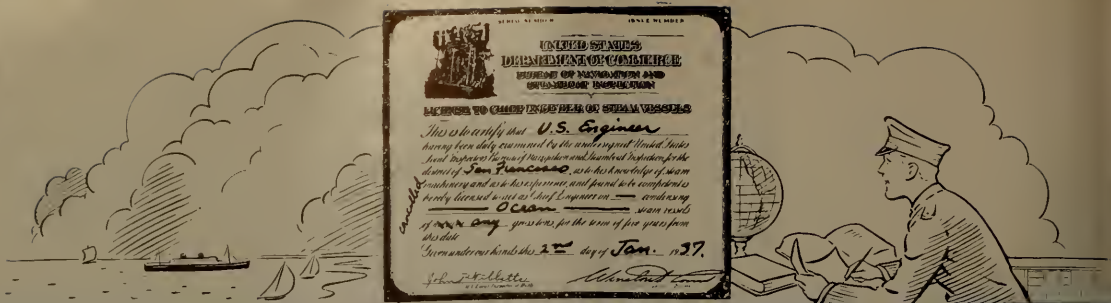 SERIAL NUMBER ISSUE NUMBER
UNITED STATES
DEPARTMENT OF COMMERCE
BUREAU OF NAVIGATION AND
STEAMBOAT INSPECTION
LICENSE TO CHIEF ENGINEER OF STEAM VESSELS
This is to certify that U.S. Engineer
having been duly examined by the undersigned United States
Local Inspectors Bureau of Navigation and Steamboat Inspection for the
district of San Francisco, as to his knowledge of steam
machinery and as to his experience, and found to be competent is
hereby licensed to act as Chief Engineer on — condensing
Ocean steam vessels
of any gross tons, for the term of five years from
this date
Given under our hands this 2nd day of Jan. 1937.
cancelled
John